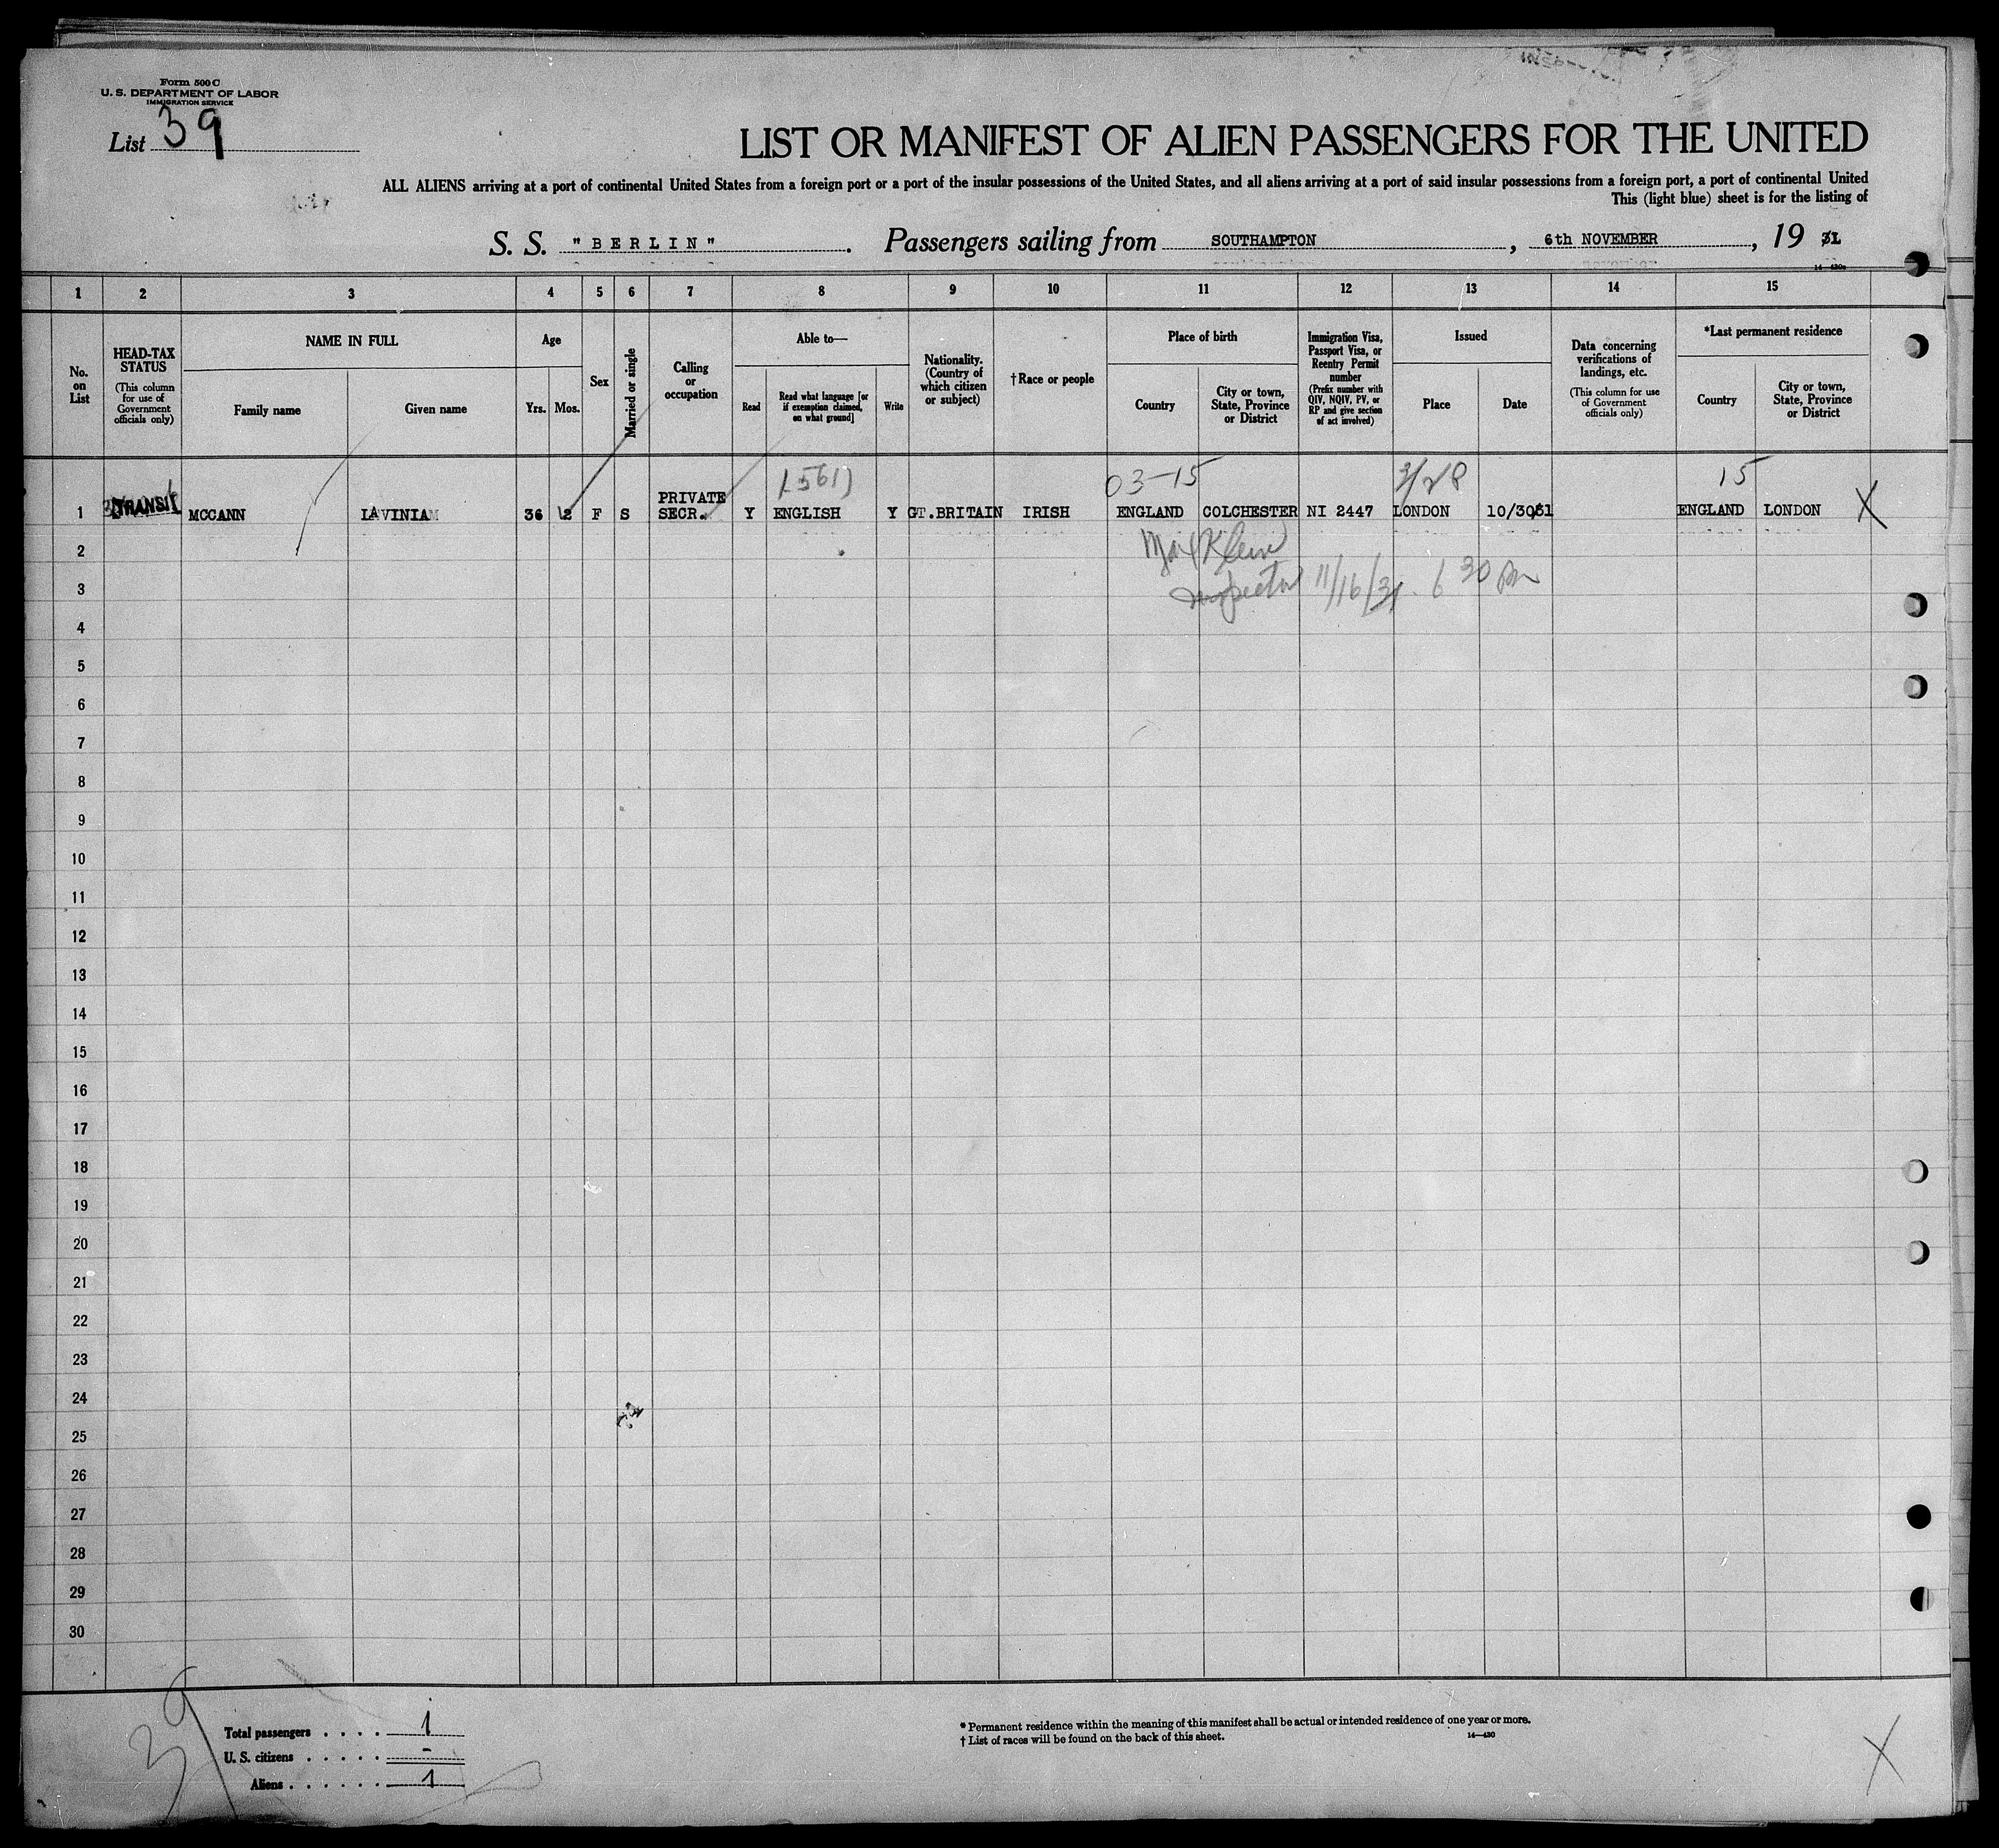 Form 500 C
U. S. DEPARTMENT OF LABOR
IMMIGRATION SERVICE
List 39
LIST OR MANIFEST OF ALIEN PASSENGERS FOR THE UNITED
ALL ALIENS arriving at a port of continental United States from a foreign port or a port of the insular possessions of the United States, and all aliens arriving at a port of said insular possessions from a foreign port, a port of continental United
This (light blue) sheet is for the listing of
S. S. "BERLIN". Passengers sailing from SOUTHAMPTON, 6th NOVEMBER, 19 31
14—430a
1 2 3 4 5 6 7 8 9 10 11 12 13 14 15
No. on List
HEAD-TAX STATUS
(This column for use of Government officials only)
NAME IN FULL
Family name
Given name
Age
Yrs. Mos.
Sex
Married or single
Calling or occupation
Able to—
Read
Read what language [or if exemption claimed, on what ground]
Write
Nationality. (Country of which citizen or subject)
†Race or people
Place of birth
Country
City or town, State, Province or District
Immigration Visa, Passport Visa, or Reentry Permit number
(Prefix number with QIV, NQIV, PV, or RP and give section of act involved)
Issued
Place
Date
Data concerning verifications of landings, etc.
(This column for use of Government officials only)
*Last permanent residence
Country
City or town, State, Province or District
(561) 03-15 3/28 15
1 TRANSIT MCCANN LAVINIA 36 2 F S PRIVATE SECR. Y ENGLISH Y GT.BRITAIN IRISH ENGLAND COLCHESTER NI 2447 LONDON 10/30/31 ENGLAND LONDON X
2 Max Klein
3 Inspector 11/16/31. 6 30 pm
4
5
6
7
8
9
10
11
12
13
14
15
16
17
18
19
20
21
22
23
24
25
26
27
28
29
30
39
Total passengers . . . . 1
U. S. citizens . . . . . -
Aliens . . . . . . 1
* Permanent residence within the meaning of this manifest shall be actual or intended residence of one year or more.
† List of races will be found on the back of this sheet.
14—430
X